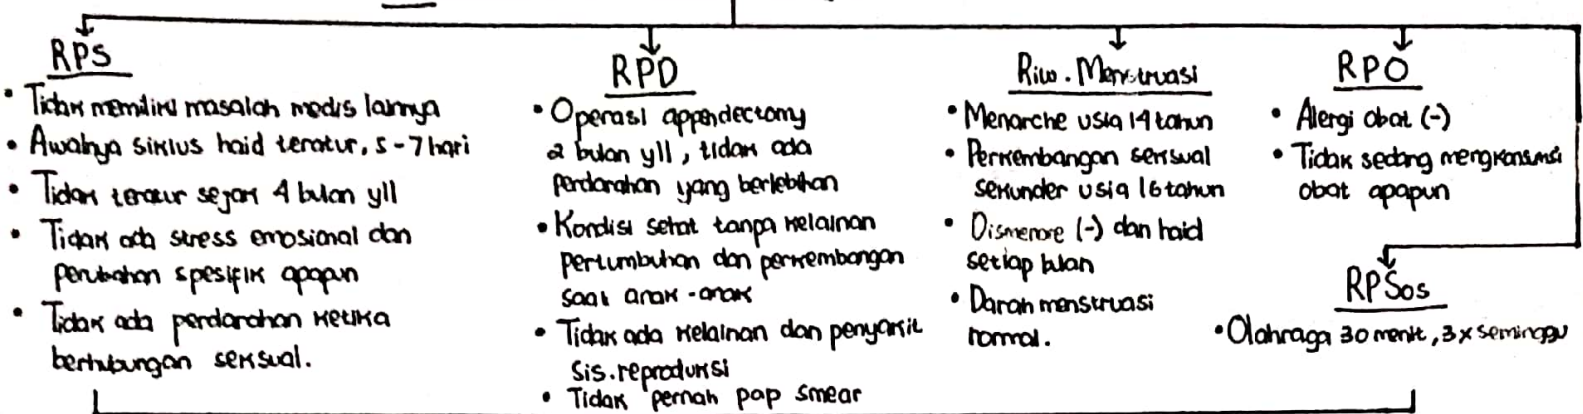 RPS
• Tidak memiliki masalah medis lainnya
• Awalnya siklus haid teratur, 5-7 hari
• Tidak teratur sejak 4 bulan yll
• Tidak ada stress emosional dan
perubahan spesifik apapun
• Tidak ada perdarahan ketika
berhubungan seksual.
RPD
• Operasi appendectomy
2 bulan yll, tidak ada
perdarahan yang berlebihan
• Kondisi sehat tanpa kelainan
pertumbuhan dan perkembangan
saat anak-anak
• Tidak ada kelainan dan penyakit
sis.reproduksi
• Tidak pernah pap smear
Riw. Menstruasi
• Menarche usia 14 tahun
• Perkembangan seksual
sekunder usia 16 tahun
• Dismenore (-) dan haid
setiap bulan
• Darah menstruasi
normal.
RPO
• Alergi obat (-)
• Tidak sedang mengkonsumsi
obat apapun
RPSos
• Olahraga 30 menit, 3x seminggu